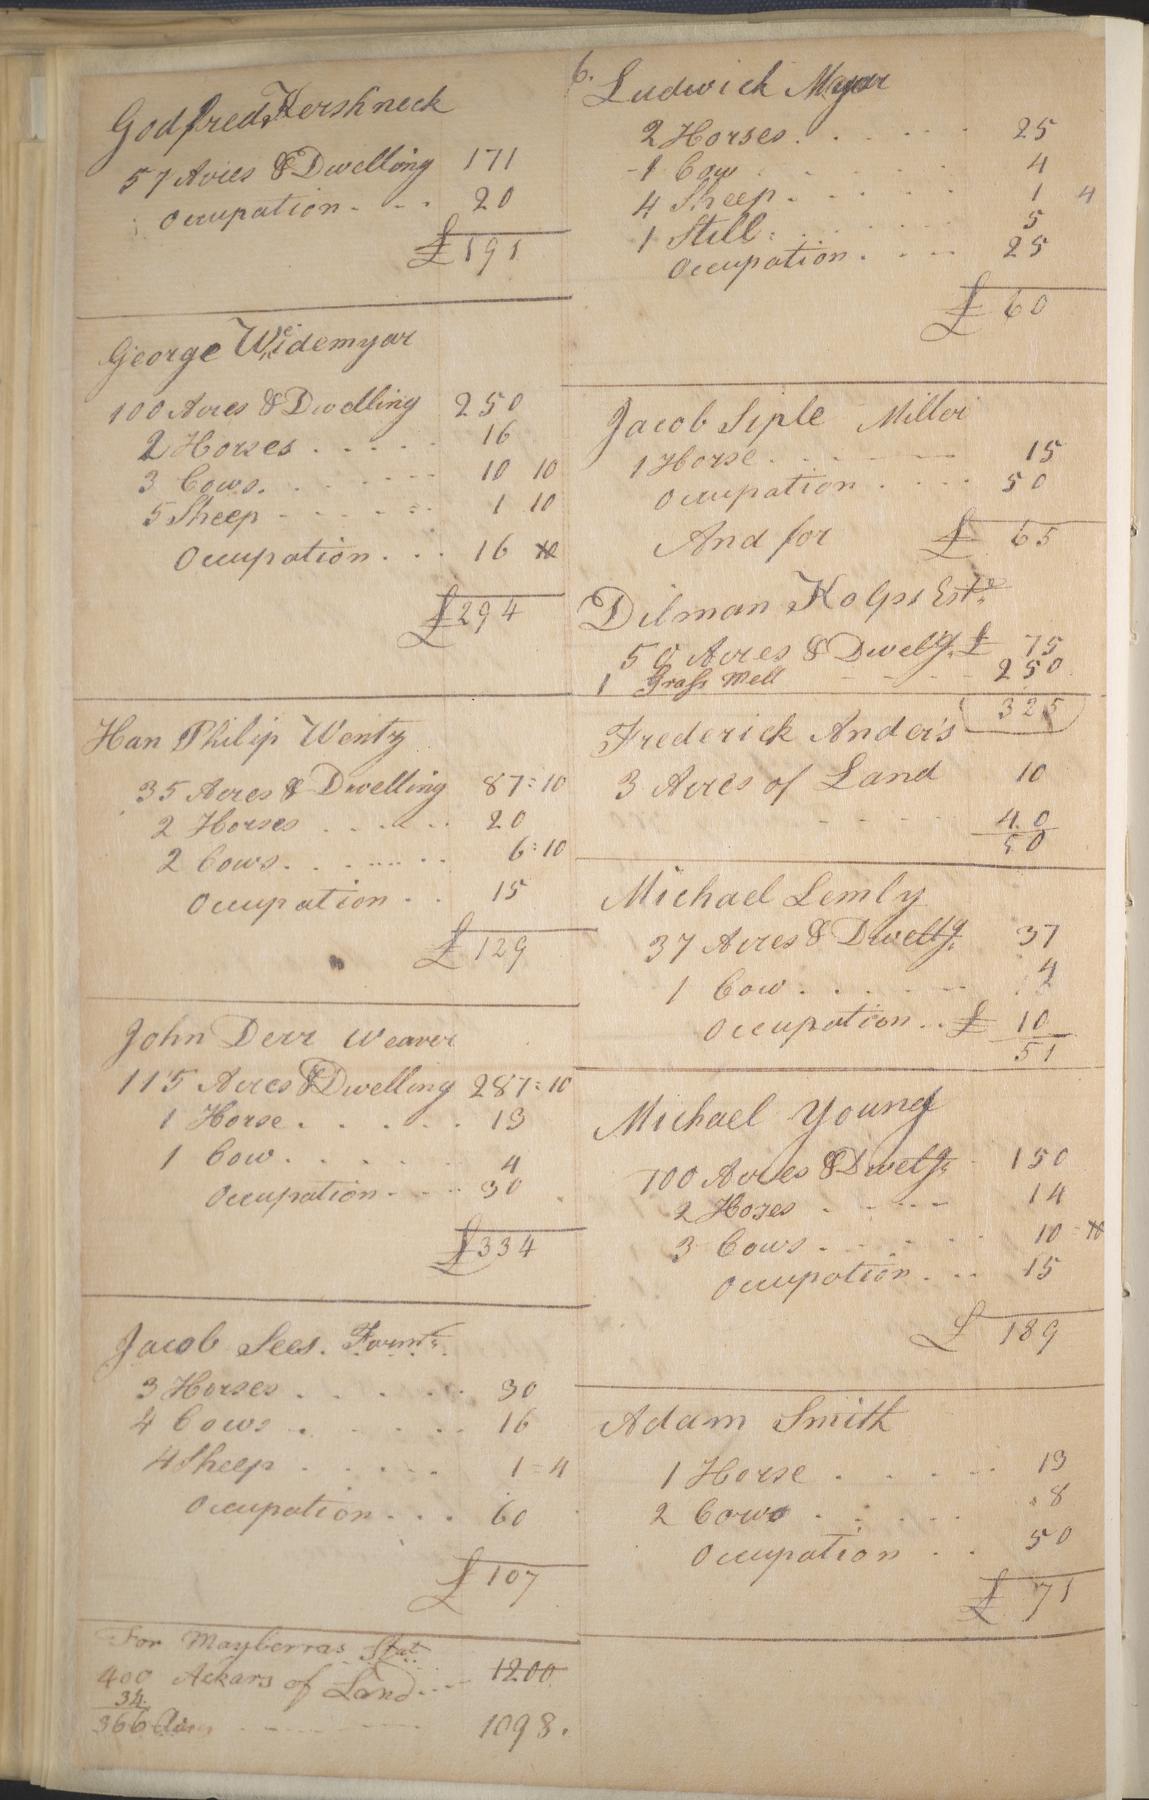 Godfred Kershneck
57 Acres & Dwelling 171
Occupation - - . 20
£191
George Weidemyar
100 Acres & Dwelling 250
2 Horses . . . . . 16
3 Cows. . . . . . . 10 10
5 Sheep - - - - - - 1 10
Occupation . . . 16
£294
Han Philip Wentz
35 Acres & Dwelling 87=10
2 Horses . . . . . 20
2 Cows. . . . . . 6=10
Occupation . . 15
£129
John Derr Weaver
115 Acres & Dwelling 287=10
1 Horse . . . . . . 13
1 Cow . . . . . . 4
Occupation - - - 30
£334
Jacob Sees. Farmr.
3 Horses . . . . . . 30
4 Cows . . . . . . 16
4 Sheep . . . . . . 1=4
Occupation . . . 60
£107
For Mayberras Stat
400 Ackars of Land - - - 1200
34
366 - - - - - - 1098.
6.
Ludwick Mayer
2 Horses . . . . . . 25
1 Cow . . . . . . . 4
4 Sheep . . . . . . 1 4
1 Still . . . . . . . 5
Occupation . . . . 25
£ 60
Jacob Siple Miller
1 Horse . . . . . . 15
Occupation . . . . 50
And for £ 65
Dilman Kolps Este.
50 Acres & Dwelg. £ 75
1 Grass Mell - - - - 250
325
Frederick Anders
3 Acres of Land 10
- - - - - - 40
50
Michael Lemly
37 Acres & Dwellg. 37
1 Cow . . . . . . 4
Occupation . . £ 10
51
Michael Young
100 Acres & Dwelg. 150
2 Horses . . . . . 14
3 Cows . . . . . . 10
Occupation . . . 15
£ 189
Adam Smith
1 Horse . . . . . . 13
2 Cows . . . . . . 8
Occupation . . 50
£ 71